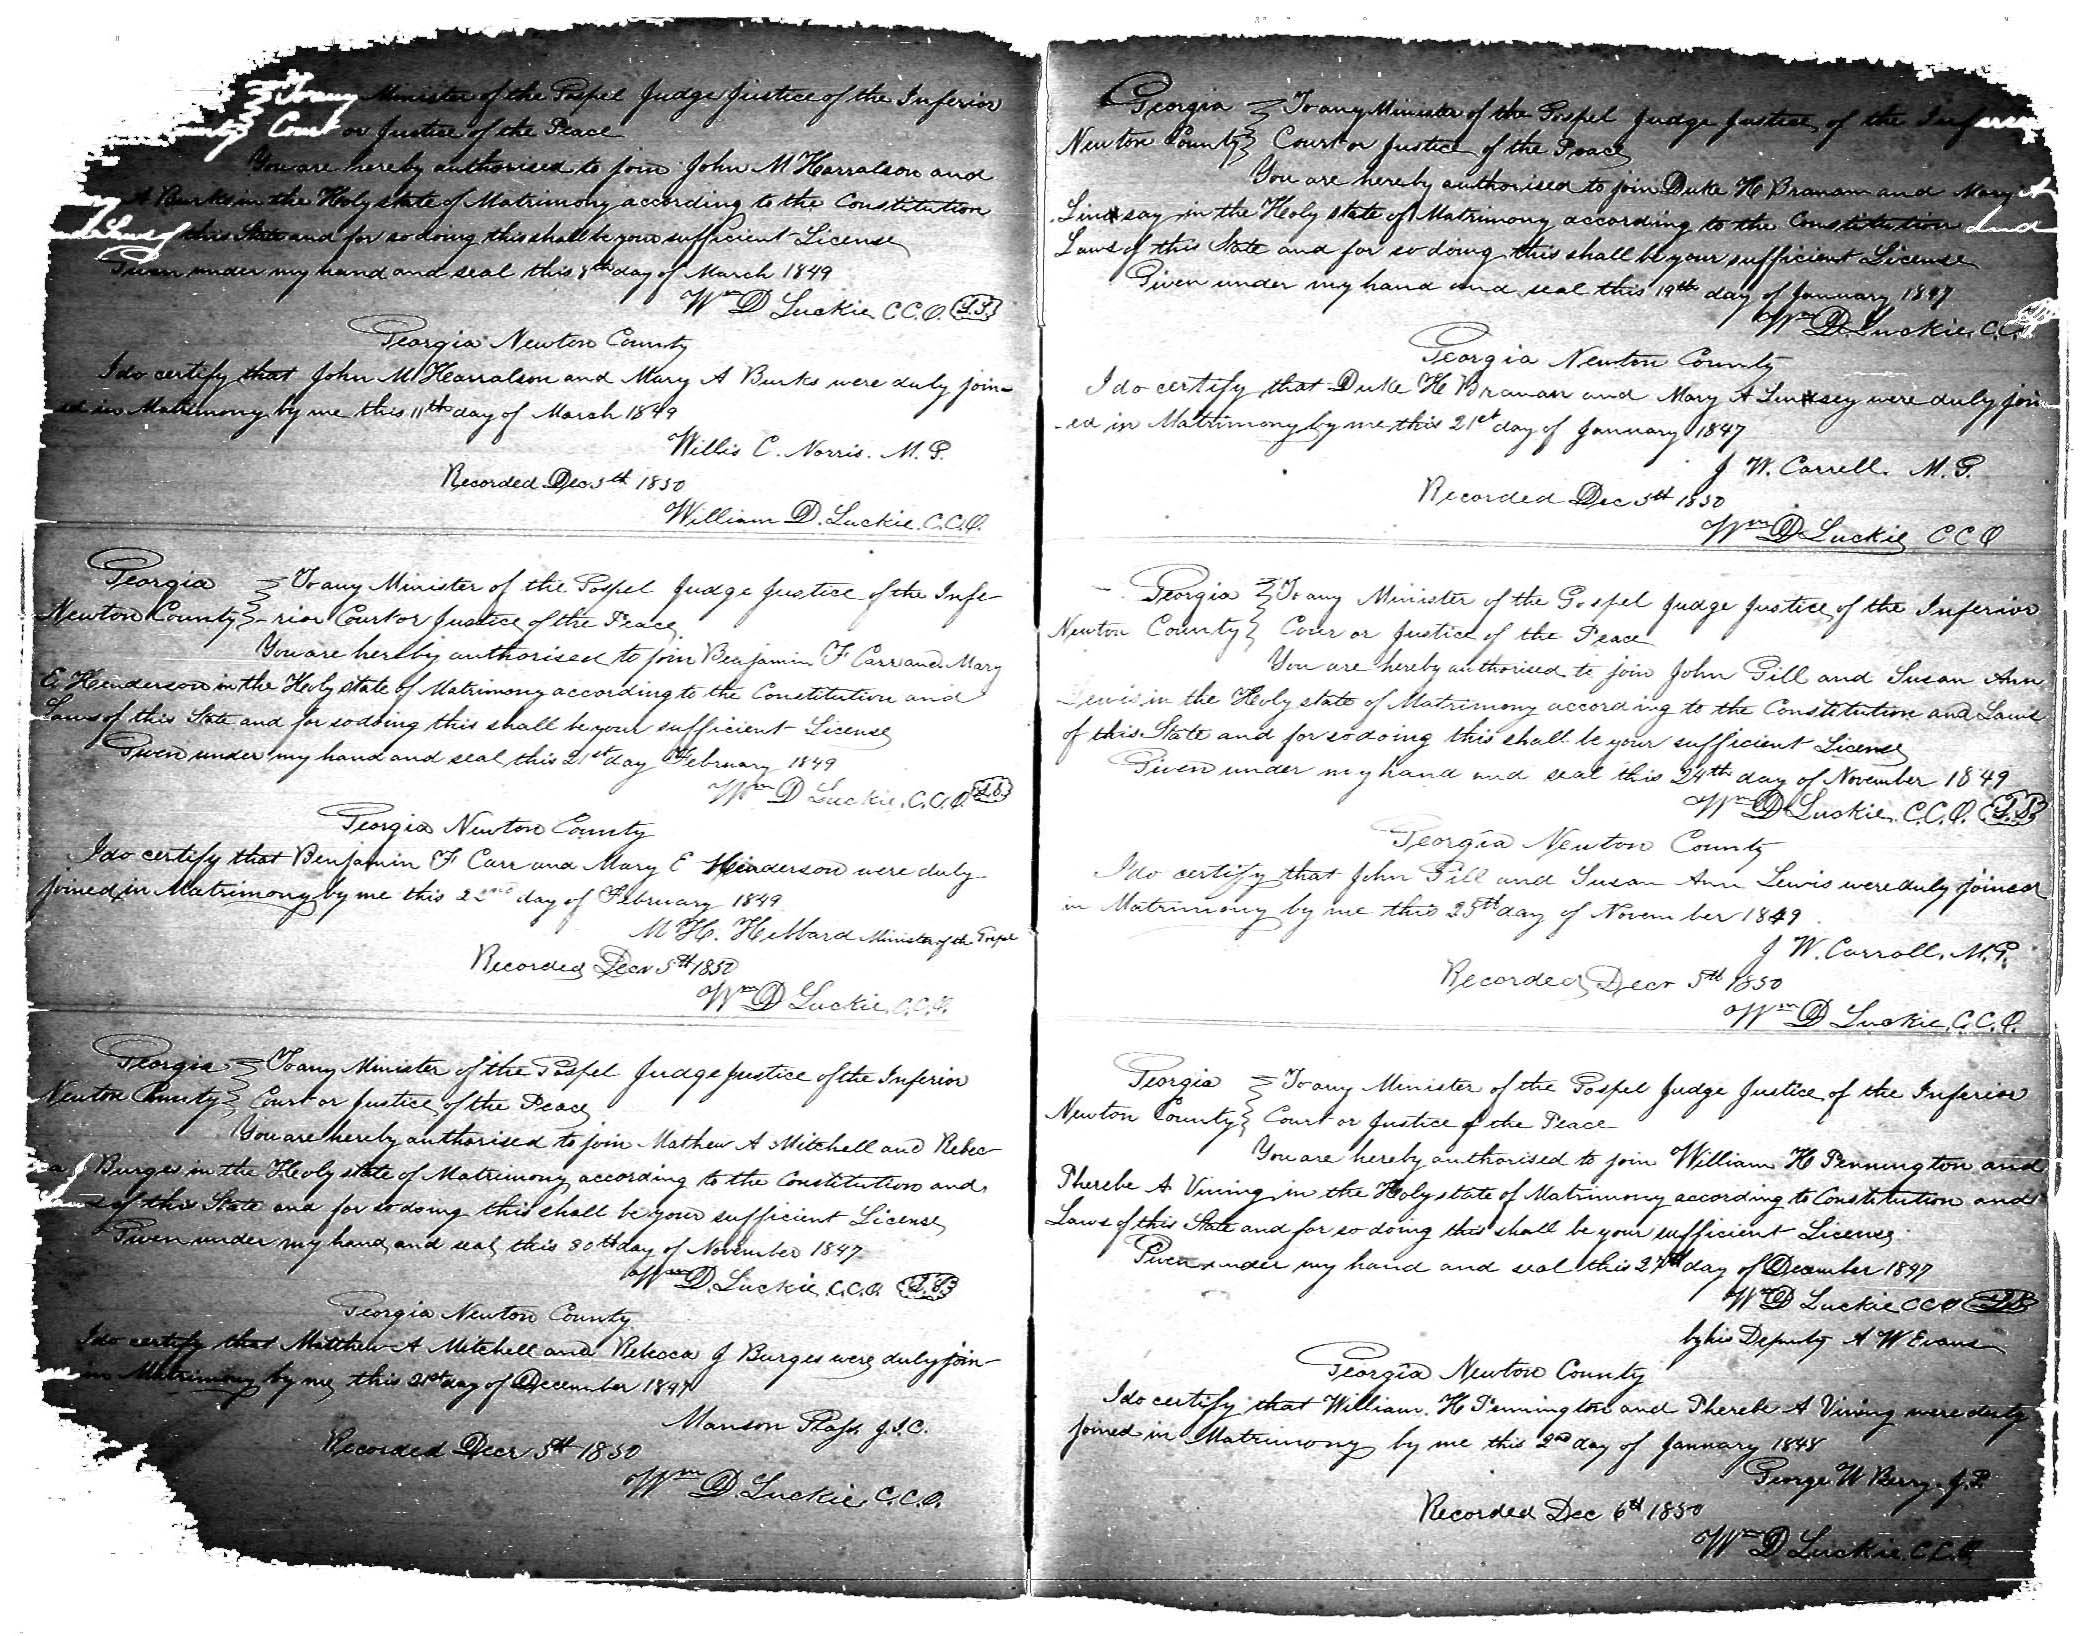 To any Minister of the Gospel Judge Justice of the Inferior
County Court or Justice of the Peace
You are hereby authorised to join John M Harralson and
A Burks in the Holy state of Matrimony according to the Constitution
and Laws of this State and for so doing this shall be your sufficient License
Given under my hand and seal this 8th day of March 1849
Wm D Luckie C.C.O. L.S.
Georgia Newton County
I do certify that John M Harralson and Mary A Burks were duly join-
ed in Matrimony by me this 11th day of March 1849
Willis C. Norris. M.G.
Recorded Dec 5th 1850
William D. Luckie. C.C.O.
Georgia To any Minister of the Gospel Judge Justice of the Infe-
Newton County -rior Court or Justice of the Peace
You are hereby authorised to join Benjamin F Carr and Mary
E Henderson in the Holy state of Matrimony according to the Constitution and
Laws of this State and for so doing this shall be your sufficient License
Given under my hand and seal this 21st day February 1849
Wm D Luckie. C.C.O. L.S.
Georgia Newton County
I do certify that Benjamin F Carr and Mary E Henderson were duly
joined in Matrimony by me this 22nd day of February 1849
M H. Hebbard Minister of the Gospel
Recorded Decr 5th 1850
Wm D Luckie. C.C.O.
Georgia To any Minister of the Gospel Judge Justice of the Inferior
Newton County Court or Justice of the Peace
You are hereby authorised to join Mathew A Mitchell and Rebec-
ca J Burges in the Holy state of Matrimony according to the Constitution and
Laws of this State and for so doing this shall be your sufficient License
Given under my hand and seal this 30th day of November 1847
Wm D. Luckie C.C.O. L.S.
Georgia Newton County
I do certify that Matthew A Mitchell and Rebecca J Burges were duly join-
in Matrimony by me this 21st day of December 1847
Manson J.I.C.
Recorded Decr 5th 1850
Wm D. Luckie C.C.O.
Georgia To any Minister of the Gospel Judge Justice of the Inferior
Newton County Court or Justice of the Peace
You are hereby authorised to join Duke H Branam and Mary A
Lindsay in the Holy state of Matrimony according to the Constitution and
Laws of this State and for so doing this shall be your sufficient License
Given under my hand and seal this 19th day of January 1847
Wm D. Luckie. C.C.
Georgia Newton County
I do certify that Duke H Branan and Mary A Lindsey were duly join
-ed in Matrimony by me this 21st day of January 1847
J W. Carrell. M.G.
Recorded Dec 5th 1850
Wm D Luckie C C O
Georgia To any Minister of the Gospel Judge Justice of the Inferior
Newton County Cour or Justice of the Peace
You are hereby authorised to join John Gill and Susan Ann
Lewis in the Holy state of Matrimony according to the Constitution and Laws
of this State and for so doing this shall be your sufficient License
Given under my hand and seal this 24th day of November 1849
Wm D Luckie. C.C.O. L.S.
Georgia Newton County
I do certify that John Gill and Susan Ann Lewis were duly joined
in Matrimony by me this 25th day of November 1849
J W. Carroll. M.G.
Recorded Decr 5th 1850
Wm D Luckie. C.C.O.
Georgia To any Minister of the Gospel Judge Justice of the Inferior
Newton County Court or Justice of the Peace
You are hereby authorised to join William H Pennington and
Pherebe A Vining in the Holy state of Matrimony according to Constitution and
Laws of this State and for so doing this shall be your sufficient License
Given under my hand and seal this 27th day of December 1847
Wm D Luckie C C O L.S.
by his Deputy A W Evans
Georgia Newton County
I do certify that William. H Pennington and Pherebe A Vining were duly
joined in Matrimony by me this 2nd day of January 1848
George W Berry. J.P.
Recorded Dec 6th 1850
Wm D Luckie. C.C.O.